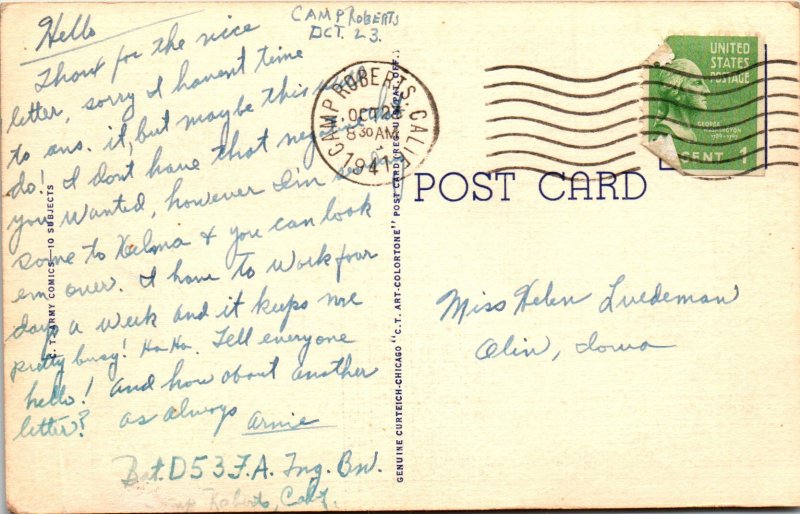 CAMP ROBERTS
OCT. 23.
Hello
Thanx for the nice
letter, sorry I havent time
to ans. it, but maybe this will
do! I dont have that negative
you wanted, however I'm sending
some to Velma & you can look
em over. I have to work four
days a week and it keeps me
pretty busy! Ha Ha. Tell everyone
hello! And how about another
letter? as always Arnie
Bat. D 53 F.A. Tng. Bn.
Camp Roberts, Calif.
C. T. ARMY COMICS—10 SUBJECTS
GENUINE CURTEICH-CHICAGO "C. T. ART-COLORTONE" POST CARD (REG. U. S. PAT. OFF.)
CAMP ROBERTS, CALIF.
OCT 23
8 30 AM
1941
UNITED
STATES
POSTAGE
GEORGE
WASHINGTON
CENT 1
POST CARD
Miss Helen Luedeman
Olin, Iowa